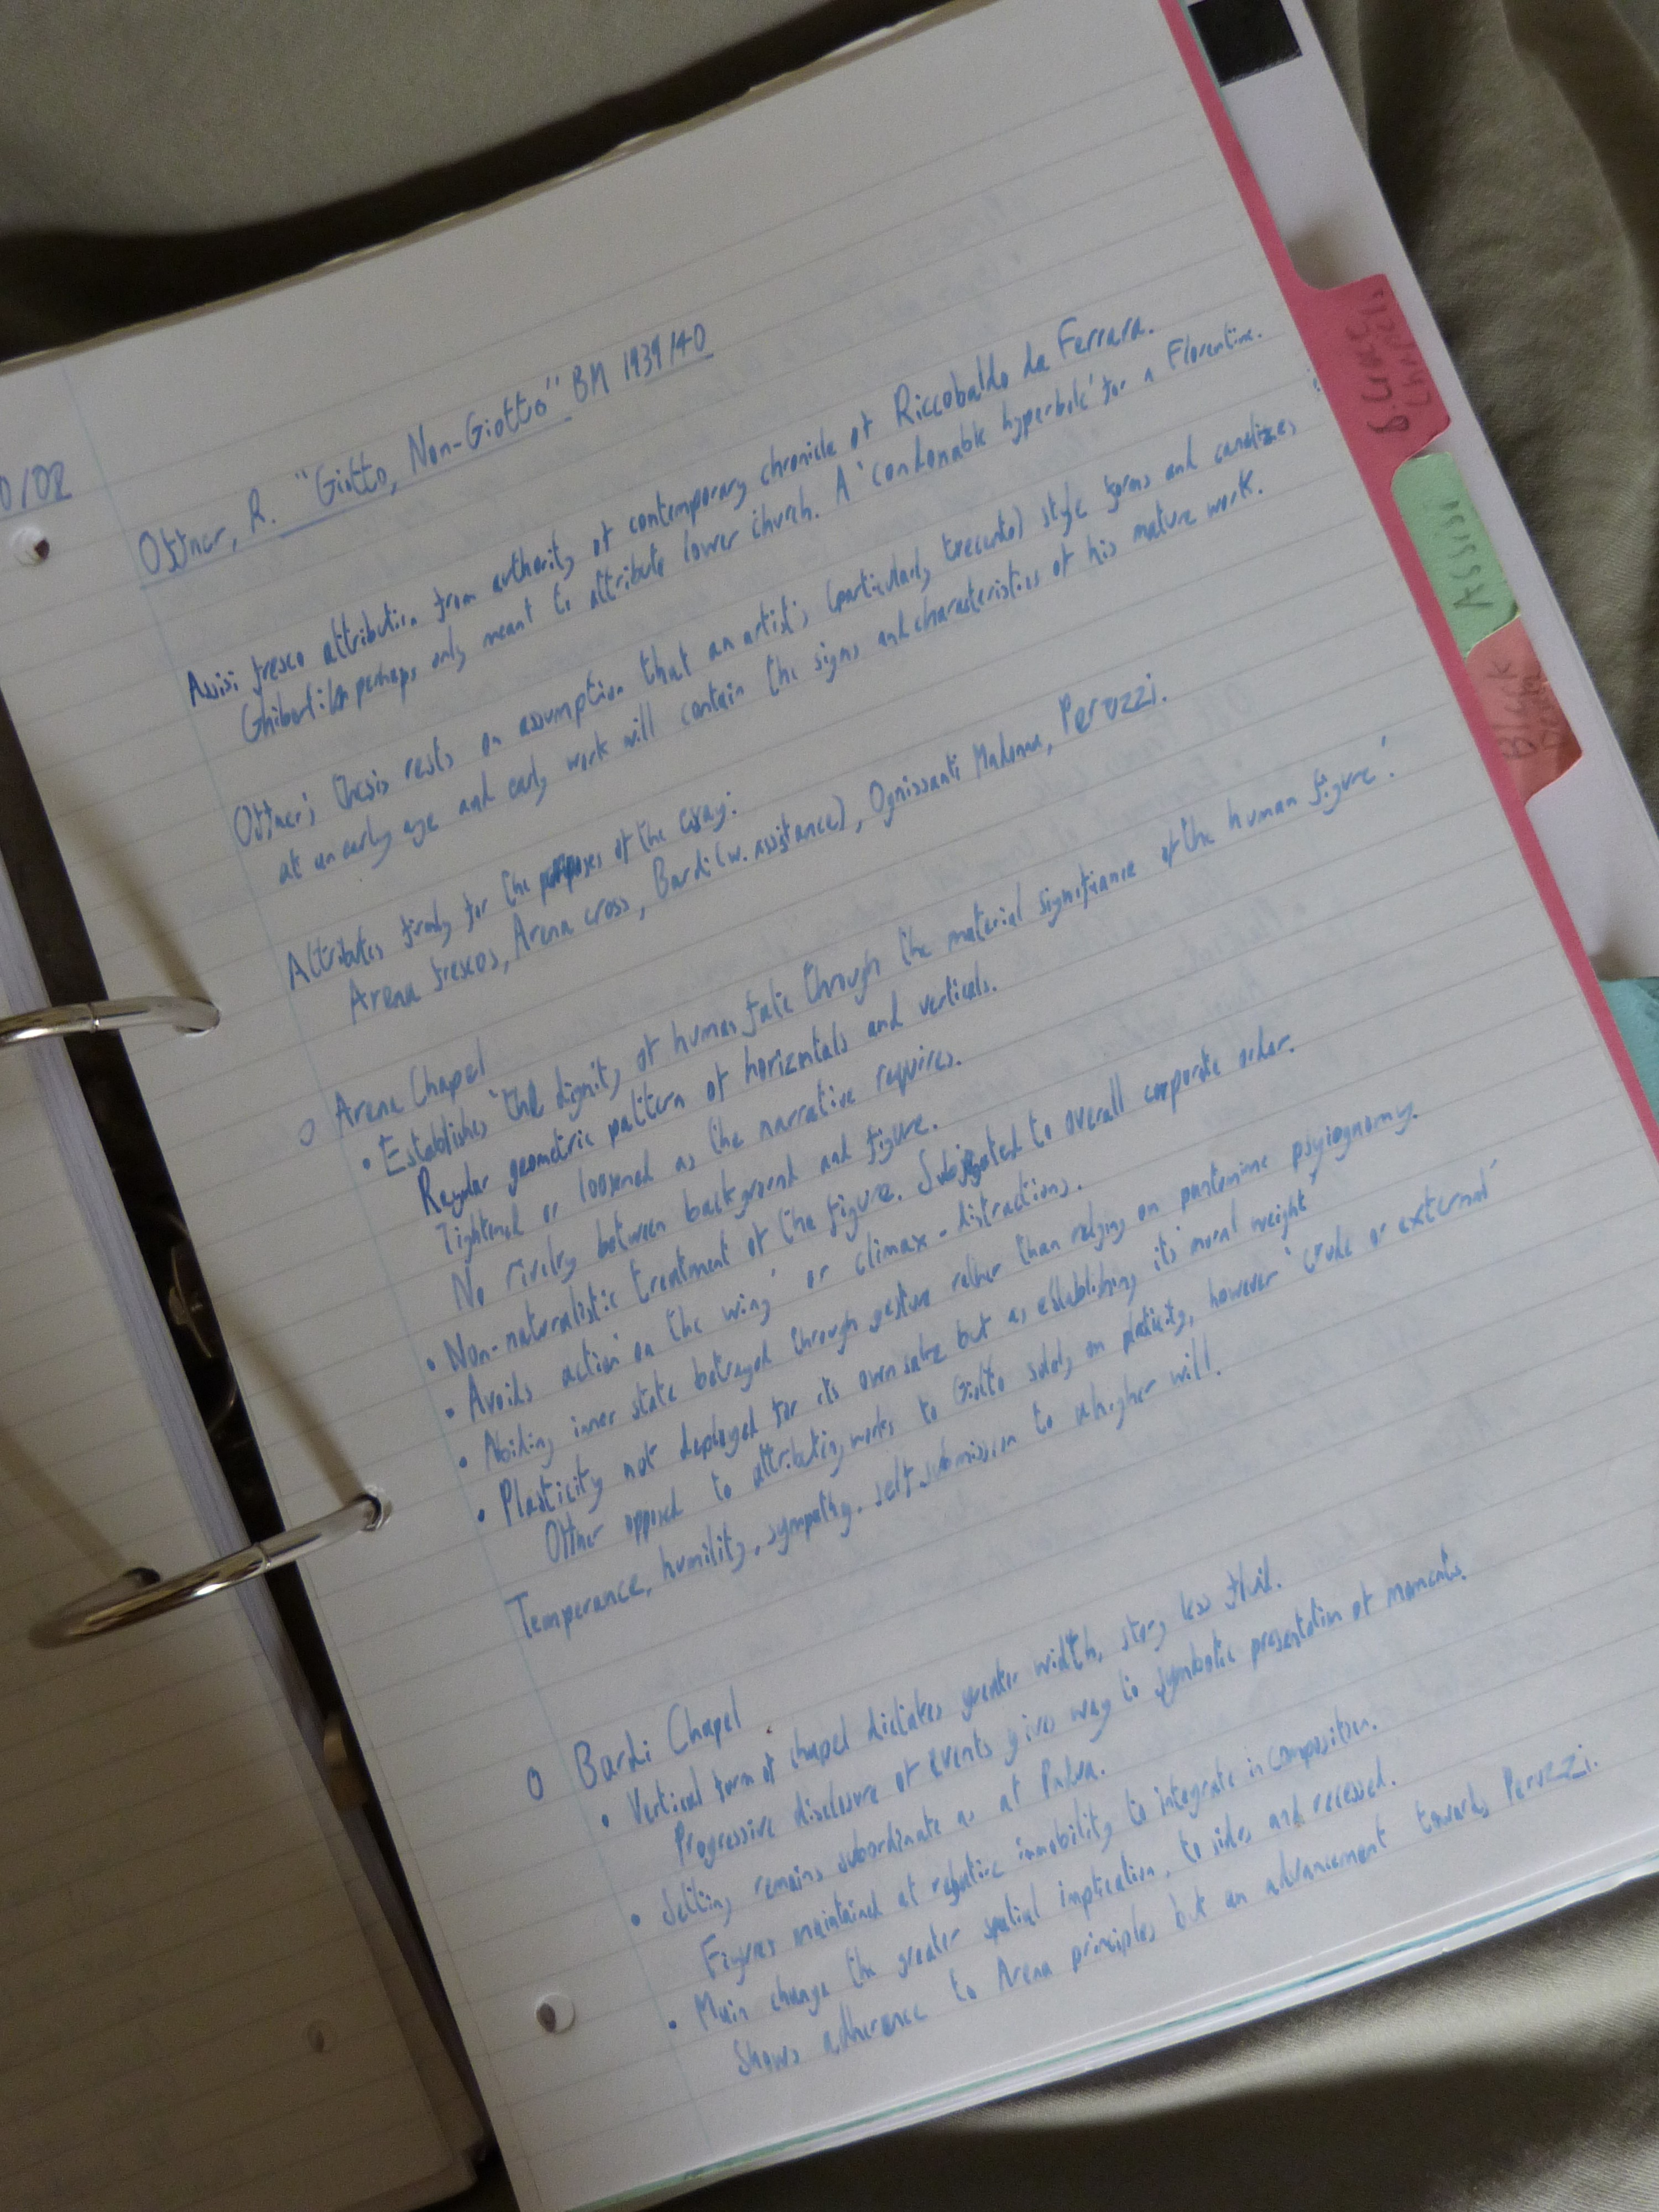 0/02
Offner, R. "Giotto, Non-Giotto" BM 1939/40
Assisi fresco attribution from authority of contemporary chronicle of Riccobaldo da Ferrara.
Ghiberti perhaps only meant to attribute lower church. A 'condonable hyperbole' for a Florentine.
Offner's thesis rests on assumption that an artist's (particularly trecento) style forms and canalizes
at an early age and early work will contain the signs and characteristics of his mature work.
Attributes firmly for the purposes of the essay:
Arena frescos, Arena cross, Bardi (w. assistance), Ognissanti Madonna, Peruzzi.
○ Arena Chapel
• Establishes 'the dignity of human fate through the material significance of the human figure'.
Regular geometric pattern of horizontals and verticals.
Tightened or loosened as the narrative requires.
No rivalry between background and figure.
• Non-naturalistic treatment of the figure. Subjugated to overall corporate order.
• Avoids action 'on the wing' or climax - distractions.
• Abiding inner state betrayed through gesture rather than relying on pantomime psyiognomy.
• Plasticity not deployed for its own sake but as establishing its 'moral weight'
Offner opposed to attributing works to Giotto solely on plasticity, however 'crude or external'
Temperance, humility, sympathy, self submission to a higher will.
○ Bardi Chapel
• Vertical form of chapel dictates greater width, story less fluid.
Progressive disclosure of events gives way to symbolic presentation of moments.
• Setting remains subordinate as at Padua.
Figures maintained at negative immobility to integrate in composition.
• Main change the greater spatial implication, to sides and recessed.
Shows adherence to Arena principles but an advancement towards Peruzzi.
S. Croce
Chapels
Assisi
Black
Death